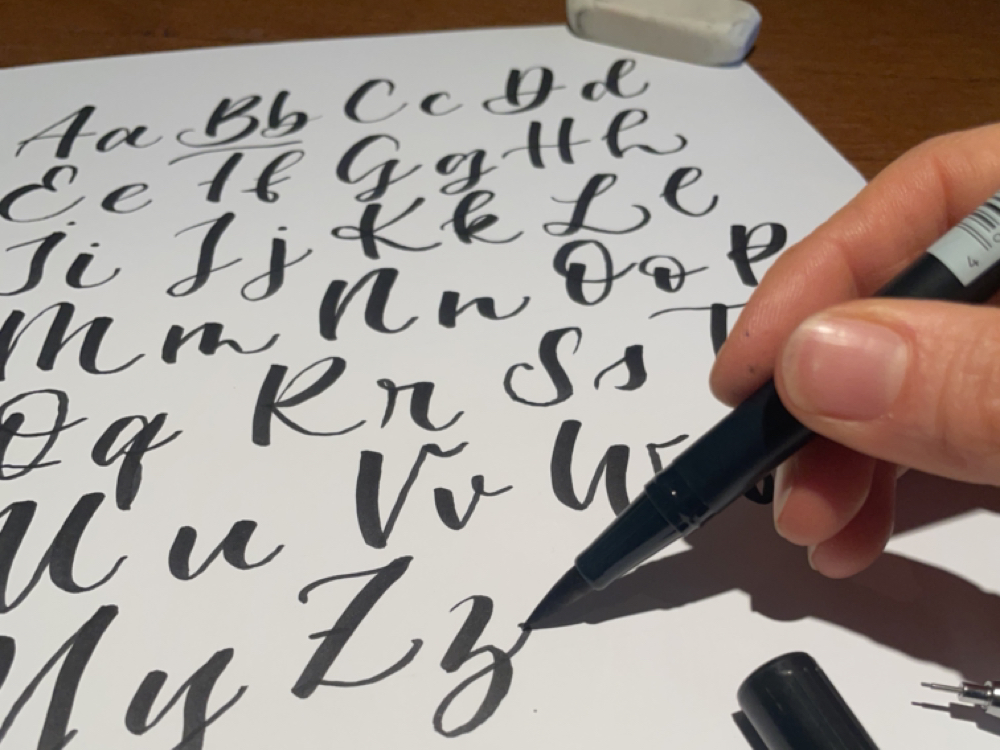 Aa Bb Cc Dd
Ee Ff Gg Hh
Ii Jj Kk Ll
Mm Nn Oo P
Qq Rr Ss T
Uu Vv W
Yy Zz
4